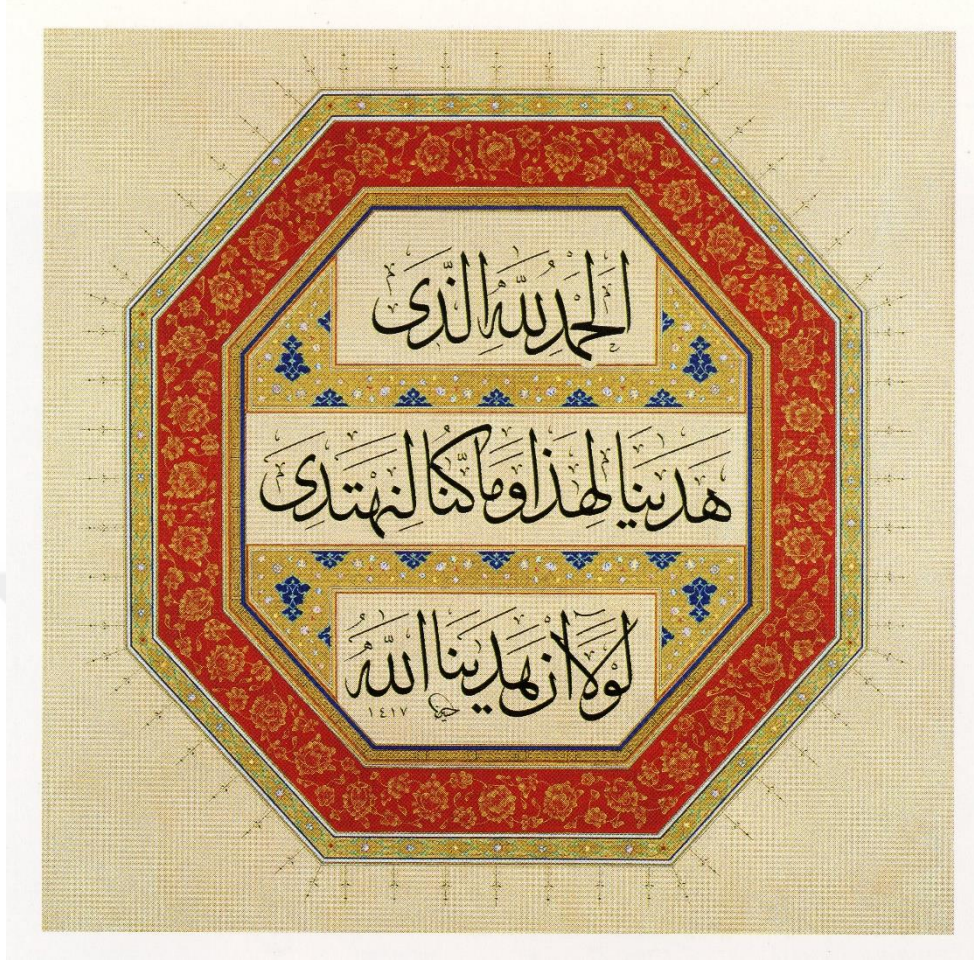 الحمد لله الذى
هدينا لهذا وما كنا لنهتدى
لولا ان هدينا الله
١٤١٧